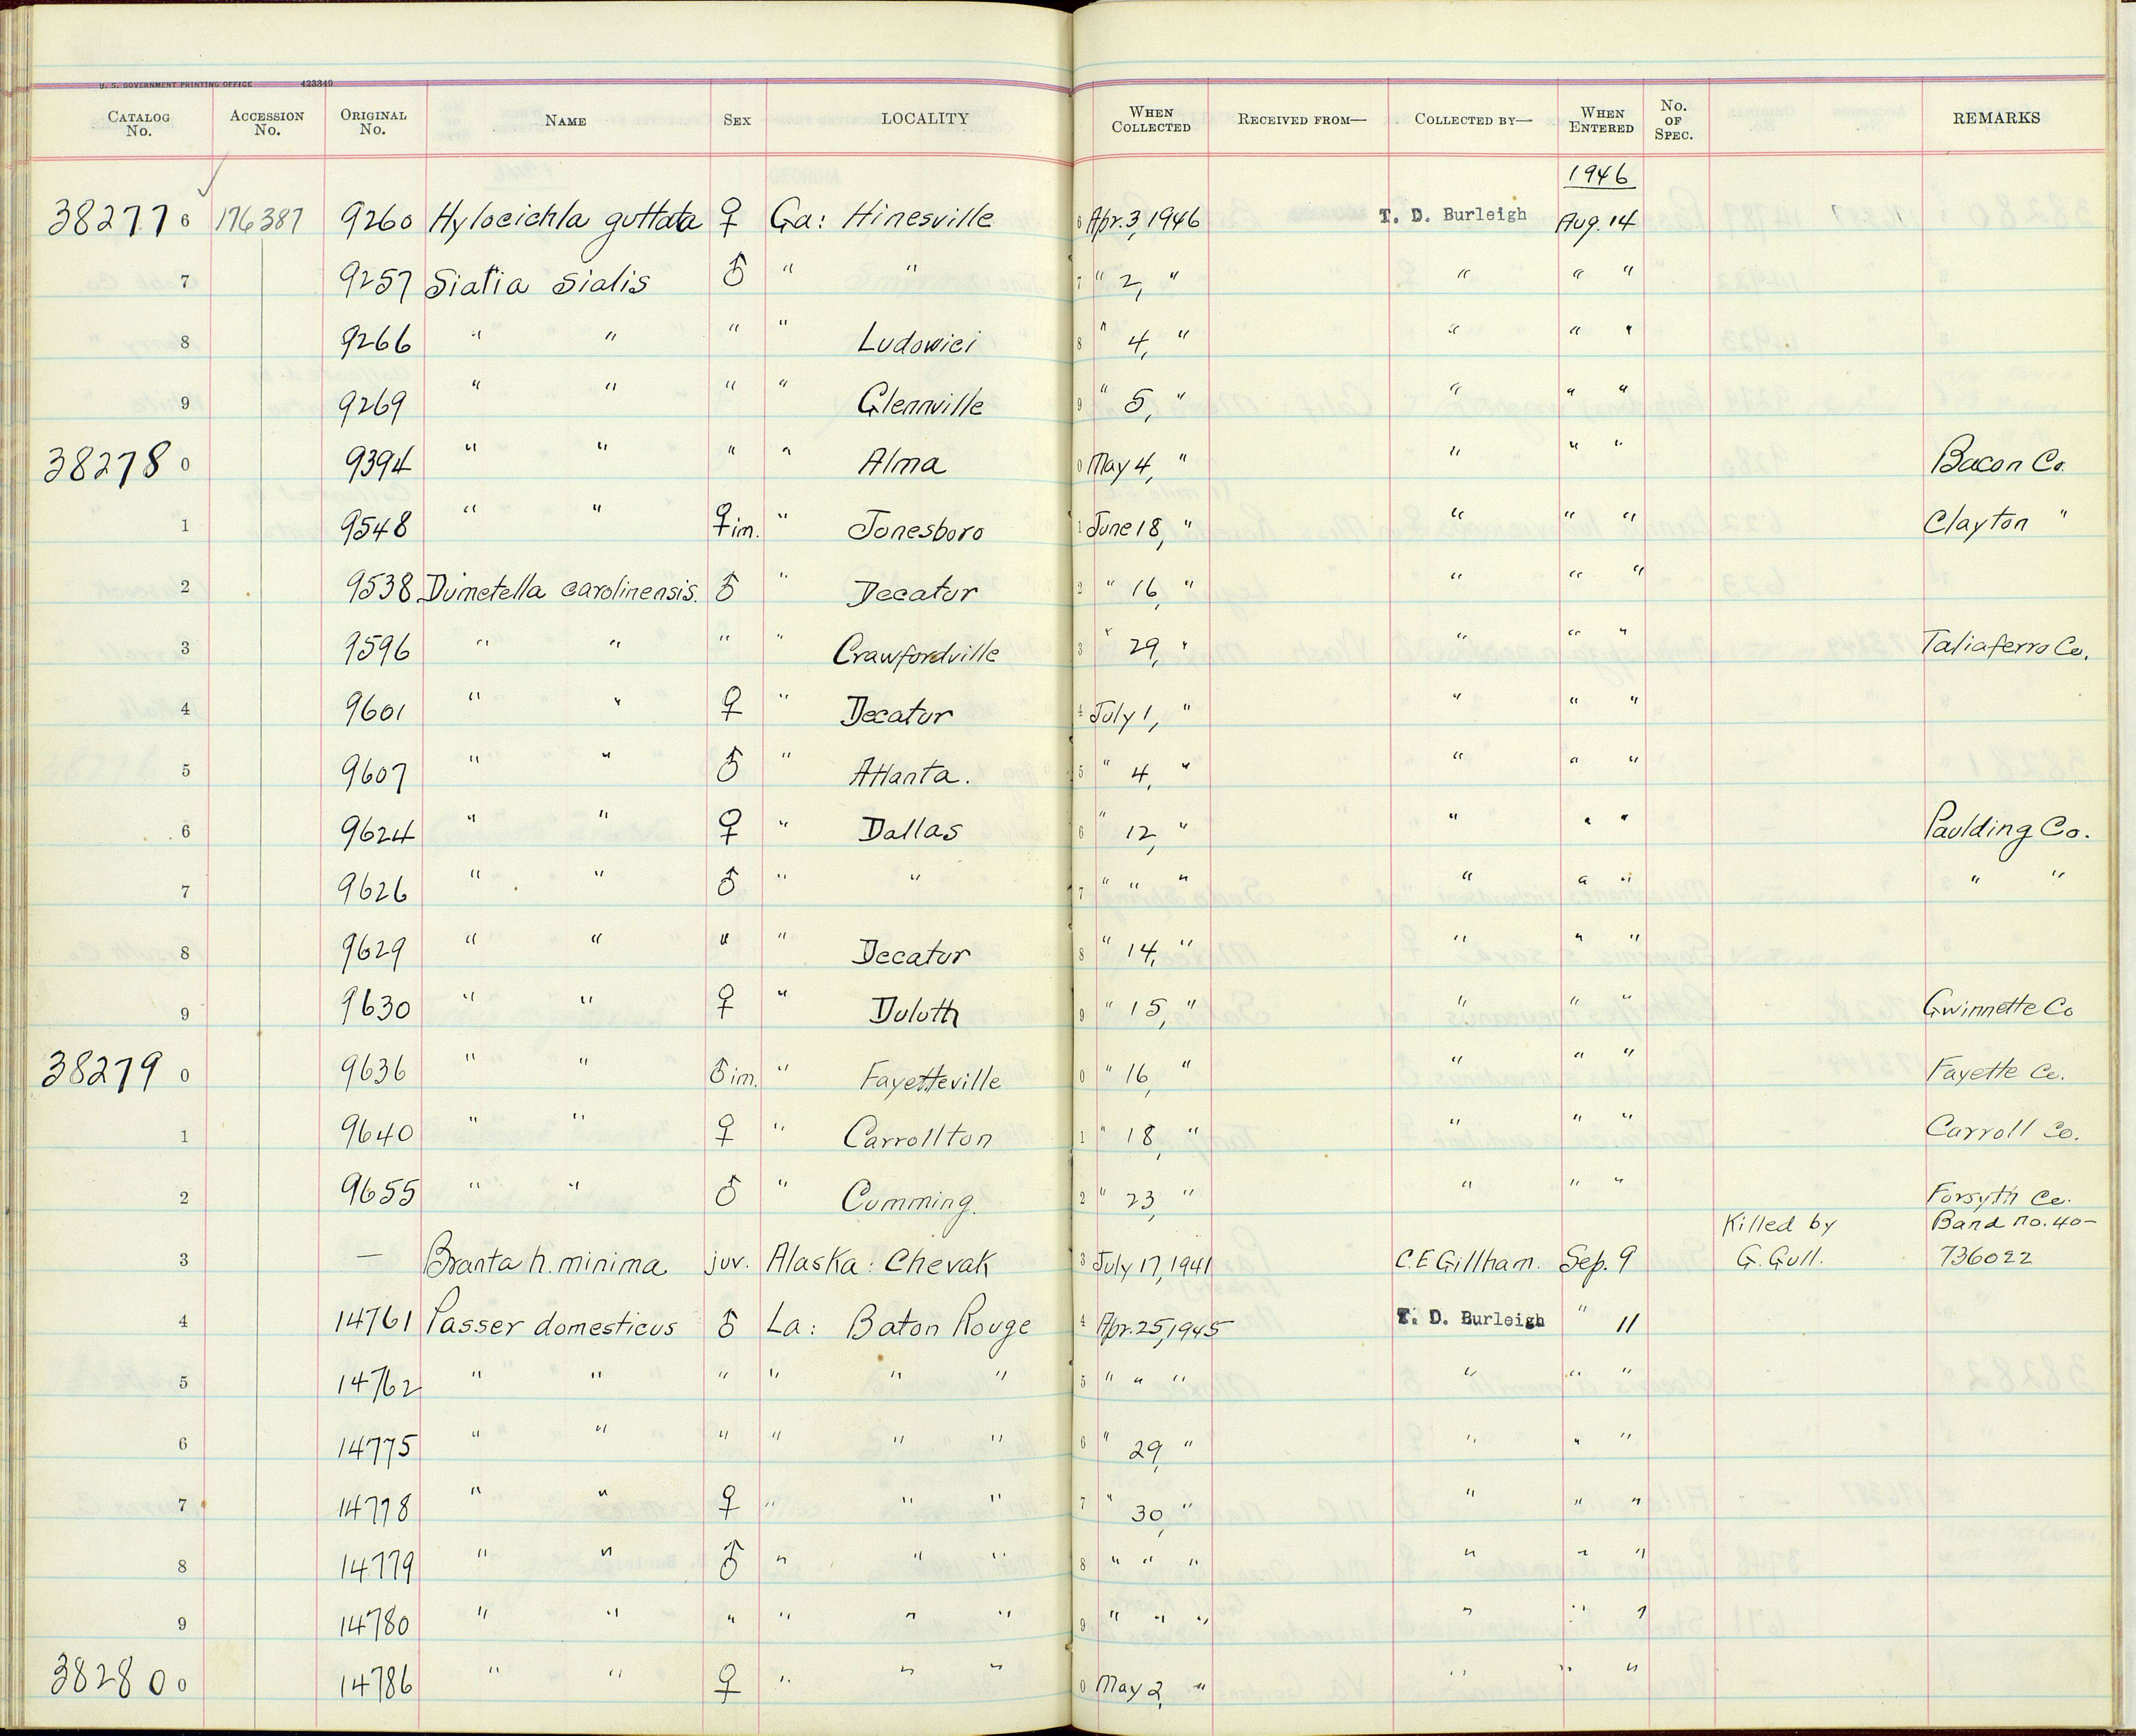 U. S. GOVERNMENT PRINTING OFFICE 423349
CATALOG No. ACCESSION No. ORIGINAL No. NAME SEX LOCALITY WHEN COLLECTED RECEIVED FROM— COLLECTED BY— WHEN ENTERED No. OF SPEC. REMARKS
1946
38277 6 176387 9260 Hylocichla guttata ♀ Ga: Hinesville 6 Apr. 3, 1946 T. D. Burleigh Aug. 14
7 9257 Sialia sialis ♂ " " 7 " 2, " " " "
8 9266 " " " " Ludowici 8 " 4, " " " "
9 9269 " " " " Glennville 9 " 5, " " " "
38278 0 9394 " " " " Alma 0 May 4, " " " " Bacon Co.
1 9548 " " ♀ im. " Jonesboro 1 June 18, " " " " Clayton "
2 9538 Dumetella carolinensis. ♂ " Decatur 2 " 16, " " " "
3 9596 " " " " Crawfordville 3 " 29, " " " " Taliaferro Co.
4 9601 " " ♀ " Decatur 4 July 1, " " " "
5 9607 " " ♂ " Atlanta. 5 " 4, " " " "
6 9624 " " ♀ " Dallas 6 " 12, " " " " Paulding Co.
7 9626 " " ♂ " " 7 " " " " " " " "
8 9629 " " " " Decatur 8 " 14, " " " "
9 9630 " " ♀ " Duluth 9 " 15, " " " " Gwinnette Co
38279 0 9636 " " ♂ im. " Fayetteville 0 " 16, " " " " Fayette Co.
1 9640 " " ♀ " Carrollton 1 " 18, " " " " Carroll Co.
2 9655 " " ♂ " Cumming. 2 " 23, " " " " Forsyth Co.
3 — Branta h. minima juv. Alaska: Chevak 3 July 17, 1941 C.E Gillham. Sep. 9 Killed by G. Gull. Band no. 40-736022
4 14761 Passer domesticus ♂ La: Baton Rouge 4 Apr. 25, 1945 T. D. Burleigh " 11
5 14762 " " " " " " 5 " " " " " "
6 14775 " " " " " " 6 " 29, " " " "
7 14778 " " ♀ " " " 7 " 30, " " " "
8 14779 " " ♂ " " " 8 " " " " " "
9 14780 " " " " " " 9 " " " " " "
38280 0 14786 " " ♀ " " " 0 May 2, " " " "